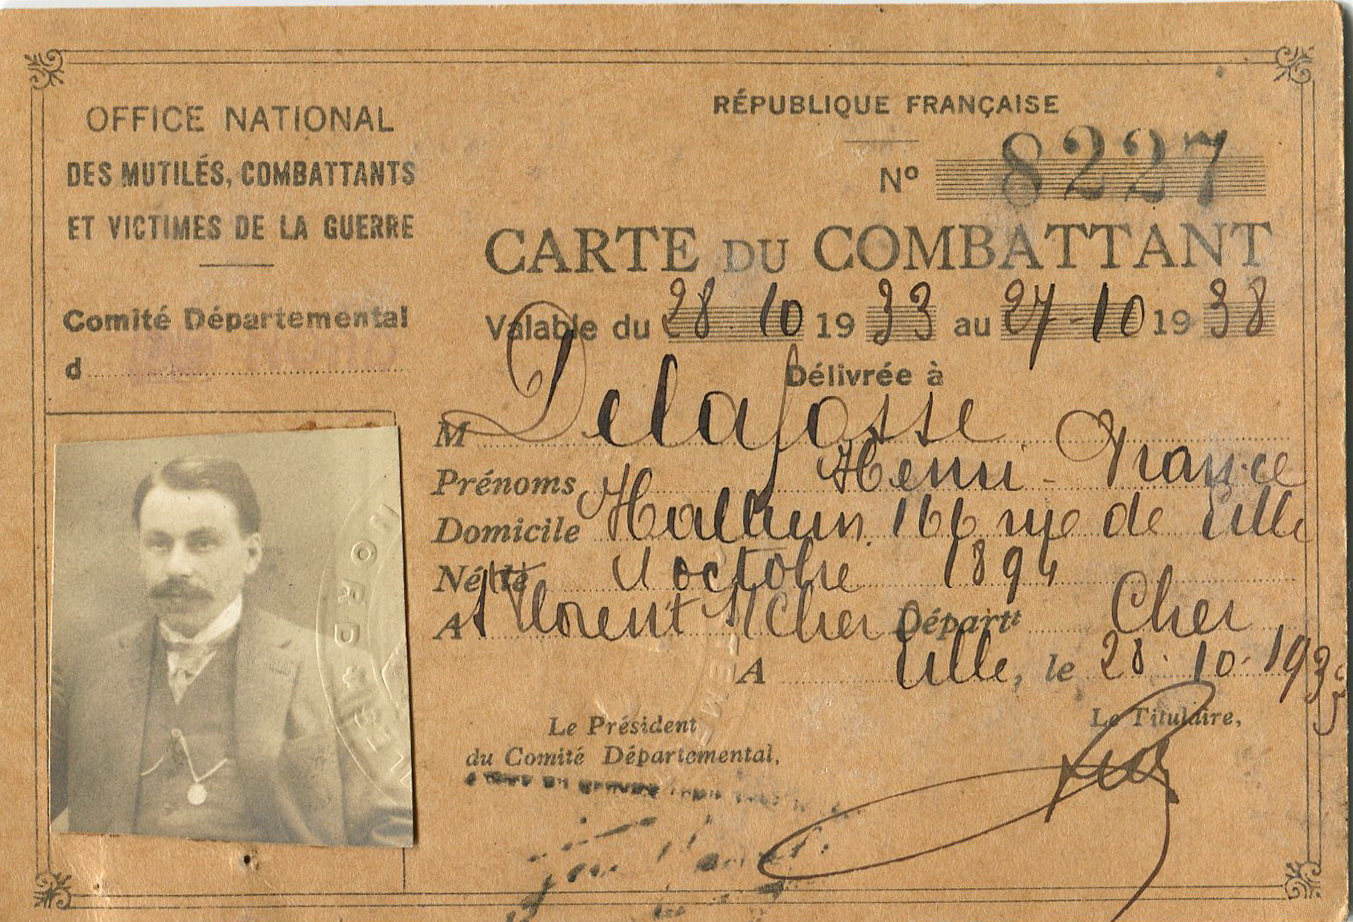 OFFICE NATIONAL
DES MUTILÉS, COMBATTANTS
ET VICTIMES DE LA GUERRE
Comité Départemental
d
RÉPUBLIQUE FRANÇAISE
Nº 8227
CARTE DU COMBATTANT
Valable du 28 10 1933 au 27-10 1938
Délivrée à
M Delafosse
Prénoms Henri France
Domicile Halluin 166 rue de Lille
Né octobre 1894
A St Florent s/ Cher Départt Cher
A Lille, le 28-10-193
Le Président
du Comité Départemental,
Le Titulaire,
NORD